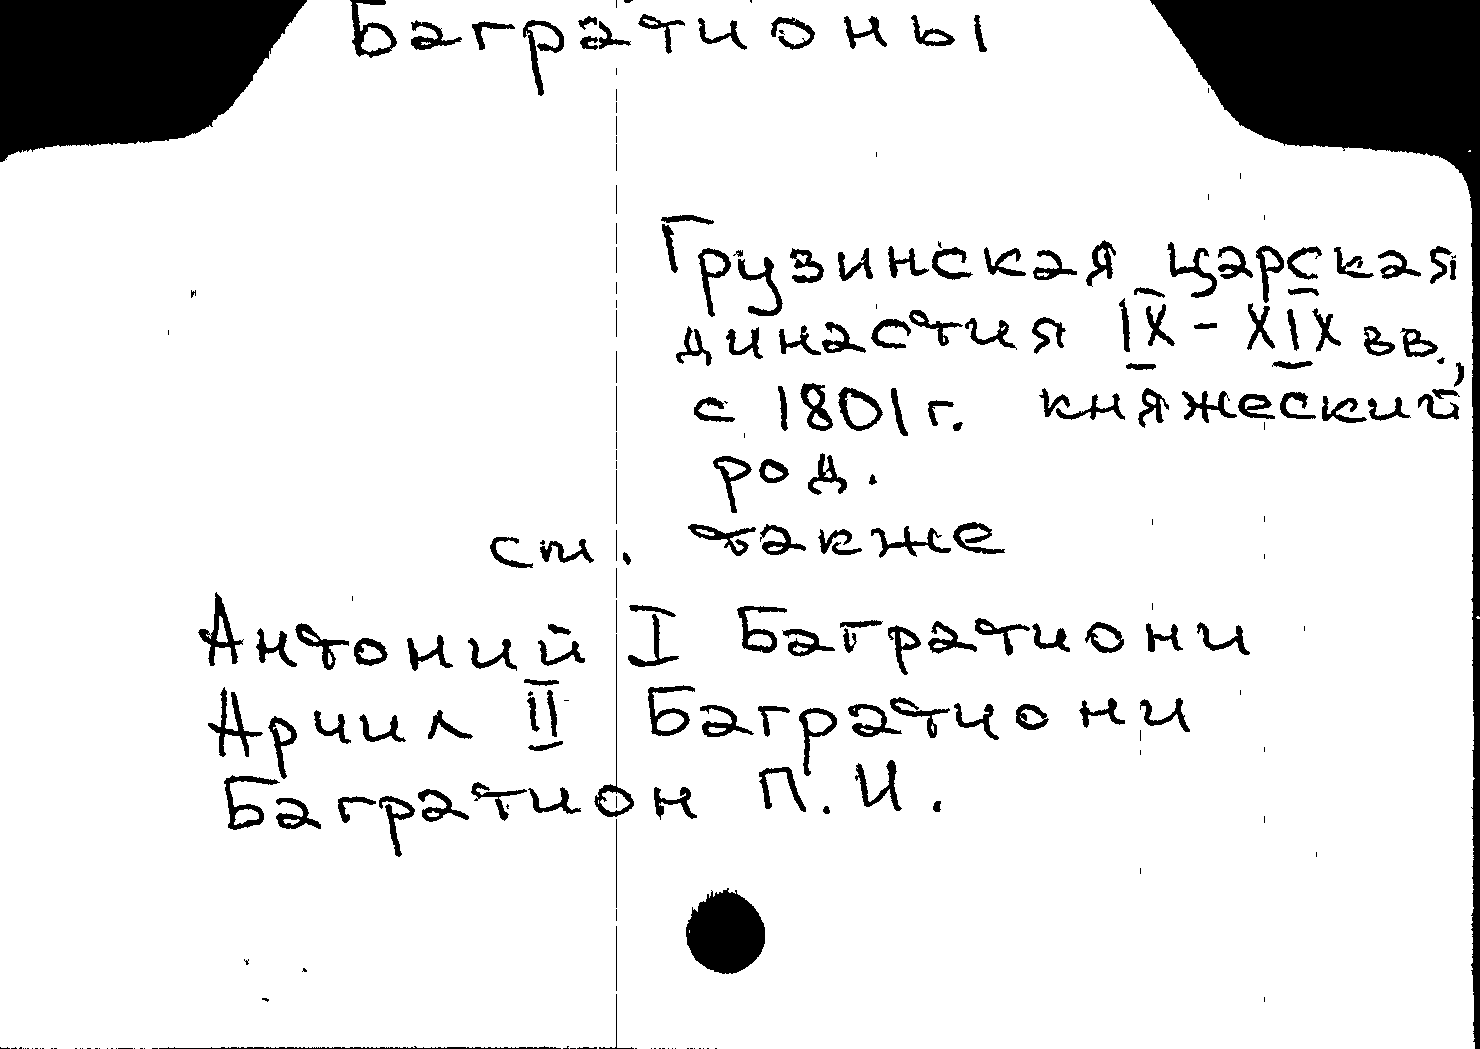 Багратионы
Грузинская царская
династия IX - XIX вв.,
с 1801 г. княжеский
род.
см. также
Антоний I Багратиони
Арчил II Багратиони
Багратион П. И.